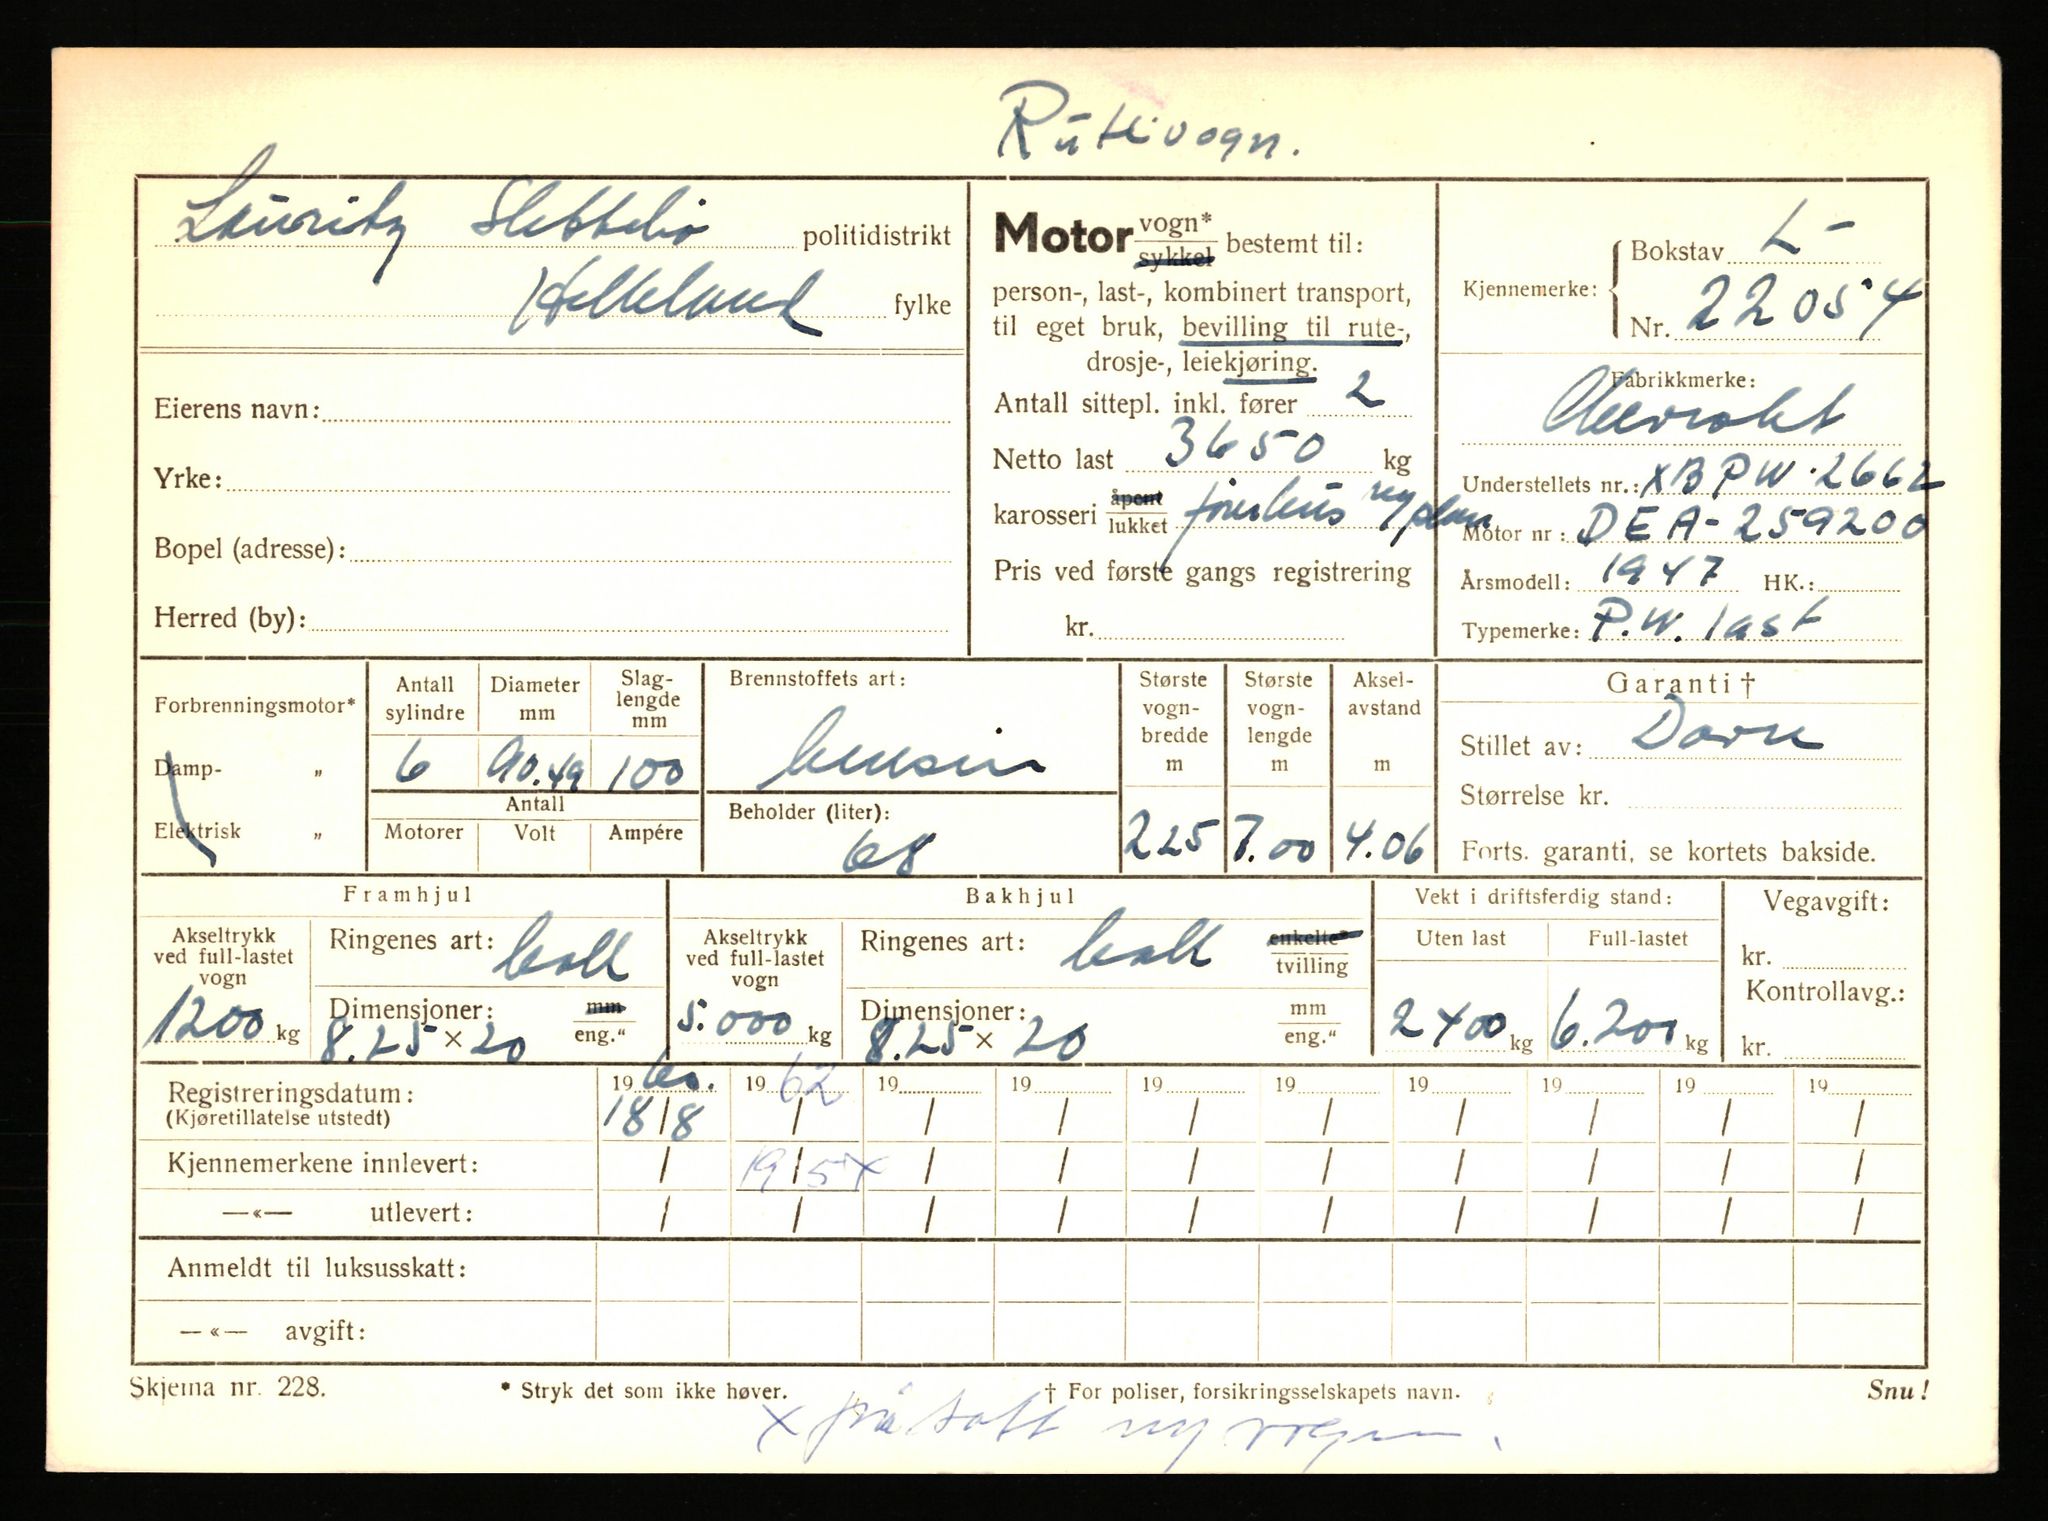 Rutevogn.
Lauritz Slettebø politidistrikt
Helleland fylke
Eierens navn:
Yrke:
Bopel (adresse):
Herred (by):
Motor vogn* sykkel bestemt til:
person-, last-, kombinert transport,
til eget bruk, bevilling til rute-,
drosje-, leiekjøring.
Antall sittepl. inkl. fører 2
Netto last 3650 kg
karosseri åpent lukket førerhus og plan
Pris ved første gangs registrering
kr.
Kjennemerke: Bokstav L-
Nr. 22054
Fabrikkmerke:
Chevrolet
Understellets nr.: XBPW.2662
Motor nr: DEA-259200
Årsmodell: 1947 HK.:
Typemerke: P.W. last
Forbrenningsmotor*
Damp- „
Elektrisk „
Antall sylindre
6
Diameter mm
90.49
Slag-lengde mm
100
Antall
Motorer Volt Ampére
Brennstoffets art:
bensin
Beholder (liter):
68
Største vogn-bredde m
225
Største vogn-lengde m
7.00
Aksel-avstand m
4.06
Garanti †
Stillet av:
Størrelse kr.
Forts. garanti, se kortets bakside.
Framhjul
Akseltrykk ved full-lastet vogn
1200 kg
Ringenes art: ball
Dimensjoner: mm eng."
8.25 × 20
Bakhjul
Akseltrykk ved full-lastet vogn
5.000 kg
Ringenes art: ball enkelte* tvilling
Dimensjoner: mm eng."
8.25 × 20
Vekt i driftsferdig stand:
Uten last Full-lastet
2400 kg 6.200 kg
Vegavgift:
kr.
Kontrollavg.:
kr.
Registreringsdatum: 19 60. 19 62 19 19 19 19 19 19 19 19
(Kjøretillatelse utstedt) 18/8 / / / / / / / / /
Kjennemerkene innlevert: / 19/5 x / / / / / / / /
—«— utlevert: / / / / / / / / / /
Anmeldt til luksusskatt:
—«— avgift:
Skjema nr. 228. * Stryk det som ikke høver. † For poliser, forsikringsselskapets navn. Snu!
x påsatt ny vogn.